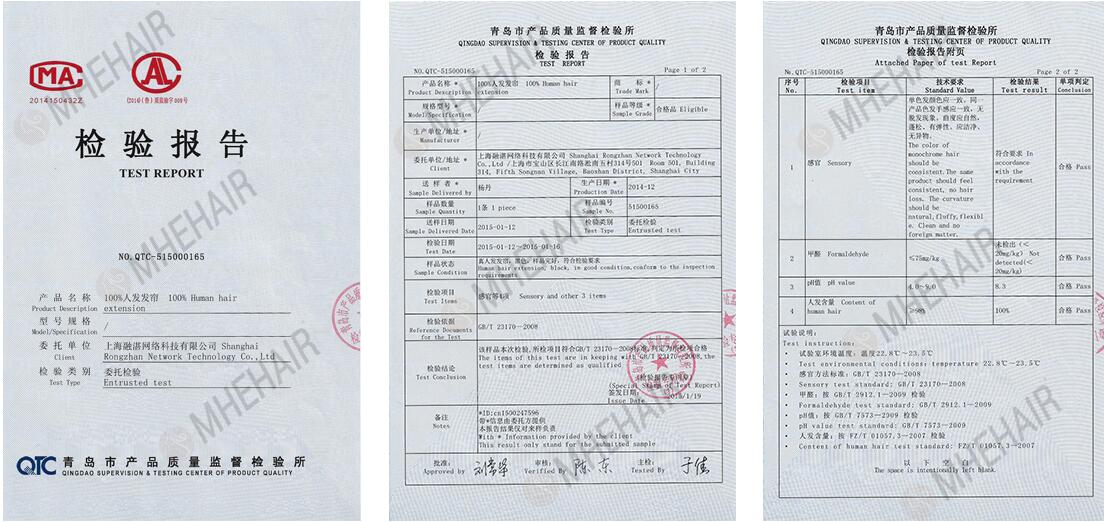 MA
2014150432Z
AL
(2014)(鲁)质监验字009号
检验报告
TEST REPORT
NO.QTC-515000165
产品名称 100%人发发帘 100% Human hair
Product Description extension
型号规格
Model/Specification /
委托单位 上海融湛网络科技有限公司 Shanghai
Client Rongzhan Network Technology Co.,Ltd
检验类别 委托检验
Test Type Entrusted test
QTC 青岛市产品质量监督检验所
QINGDAO SUPERVISION & TESTING CENTER OF PRODUCT QUALITY
MHEHAIR
青岛市产品质量监督检验所
QINGDAO SUPERVISION & TESTING CENTER OF PRODUCT QUALITY
检验报告
TEST REPORT
NO.QTC-515000165 Page 1 of 2
产品名称 * 100%人发发帘 100% Human hair 商标 * /
Product Description extension Trade Mark
规格型号 * / 样品等级 * 合格品 Eligible
Model/Specification Sample Grade
生产单位/地址 * /
Manufacturer
委托单位/地址 * 上海融湛网络科技有限公司 Shanghai Rongzhan Network Technology
Client Co.,Ltd /上海市宝山区长江南路淞南五村314号501 Room 501, Building
314, Fifth Songnan Village, Baoshan District, Shanghai City
送样者 * 杨丹 生产日期 * 2014-12
Sample Delivered by Production Date
样品数量 1条 1 piece 样品编号 51500165
Sample Quantity Sample No.
送样日期 2015-01-12 检验类别 委托检验
Sample Delivered Date Test Type Entrusted test
检验日期 2015-01-12~2015-01-16
Test Date
样品状态 真人发发帘，黑色，样品完好，符合检验要求
Sample Condition Human hair extension, black, in good condition,conform to the inspection
requirements
检验项目 感官等4项 Sensory and other 3 items
Test Items
检验依据 GB/T 23170—2008
Reference Documents
for the Test
检验结论 该样品本次检验,所检项目符合GB/T 23170—2008标准,判定为所检项合格
Test Conclusion The items of this test are in keeping with GB/T 23170—2008,the
test items are determined as qualified
(检验报告专用章)
(Special Stamp of Test Report)
签发日期
Issue Date 2015/1/19
备注 *ID:cn1500247596
Notes 带*信息由委托方提供
本报告结果仅对来样负责
With * Information provided by the client
This result only stand for the submitted sample
批准: 审核: 陈东 主检: 于佳
Approved by Verified By Tested By
MHEHAIR
青岛市产品质量监督检验所
QINGDAO SUPERVISION & TESTING CENTER OF PRODUCT QUALITY
检验报告附页
Attached Paper of test Report
No.QTC-515000165 Page 2 of 2
序号 检验项目 技术要求 检验结果 单项判定
No. Test item Standard Value Test result Conclusion
单色发颜色应一致，同一
产品色发手感应一致，无
脱发现象，曲度应自然，
蓬松，有弹性，应洁净、
无异物。
The color of
monochrome hair
should be
consistent.The same
product should feel
consistent, no hair
loss. The curvature
should be
natural,fluffy,flexibl
e. Clean and no
foreign matter.
1 感官 Sensory 符合要求 In accordance with the requirement 合格 Pass
2 甲醛 Formaldehyde ≤75mg/kg 未检出(＜20mg/kg) Not detected(＜20mg/kg) 合格 Pass
3 pH值 pH value 4.0~9.0 8.3 合格 Pass
4 人发含量 Content of human hair ≥50% 100% 合格 Pass
试验说明:
Test instruction:
• 试验室环境温度: 温度22.8℃~23.5℃
• Test environmental conditions: temperature 22.8℃~23.5℃
• 感官方法标准: GB/T 23170—2008
• Sensory test standard: GB/T 23170—2008
• 甲醛: 按 GB/T 2912.1—2009 检验
• Formaldehyde test standard: GB/T 2912.1—2009
• pH值: 按 GB/T 7573—2009 检验
• pH value test standard: GB/T 7573—2009
• 人发含量: 按 FZ/T 01057.3—2007 检验
• Content of human hair test standard: FZ/T 01057.3—2007
以下空白
The space is intentionally left blank.
MHEHAIR